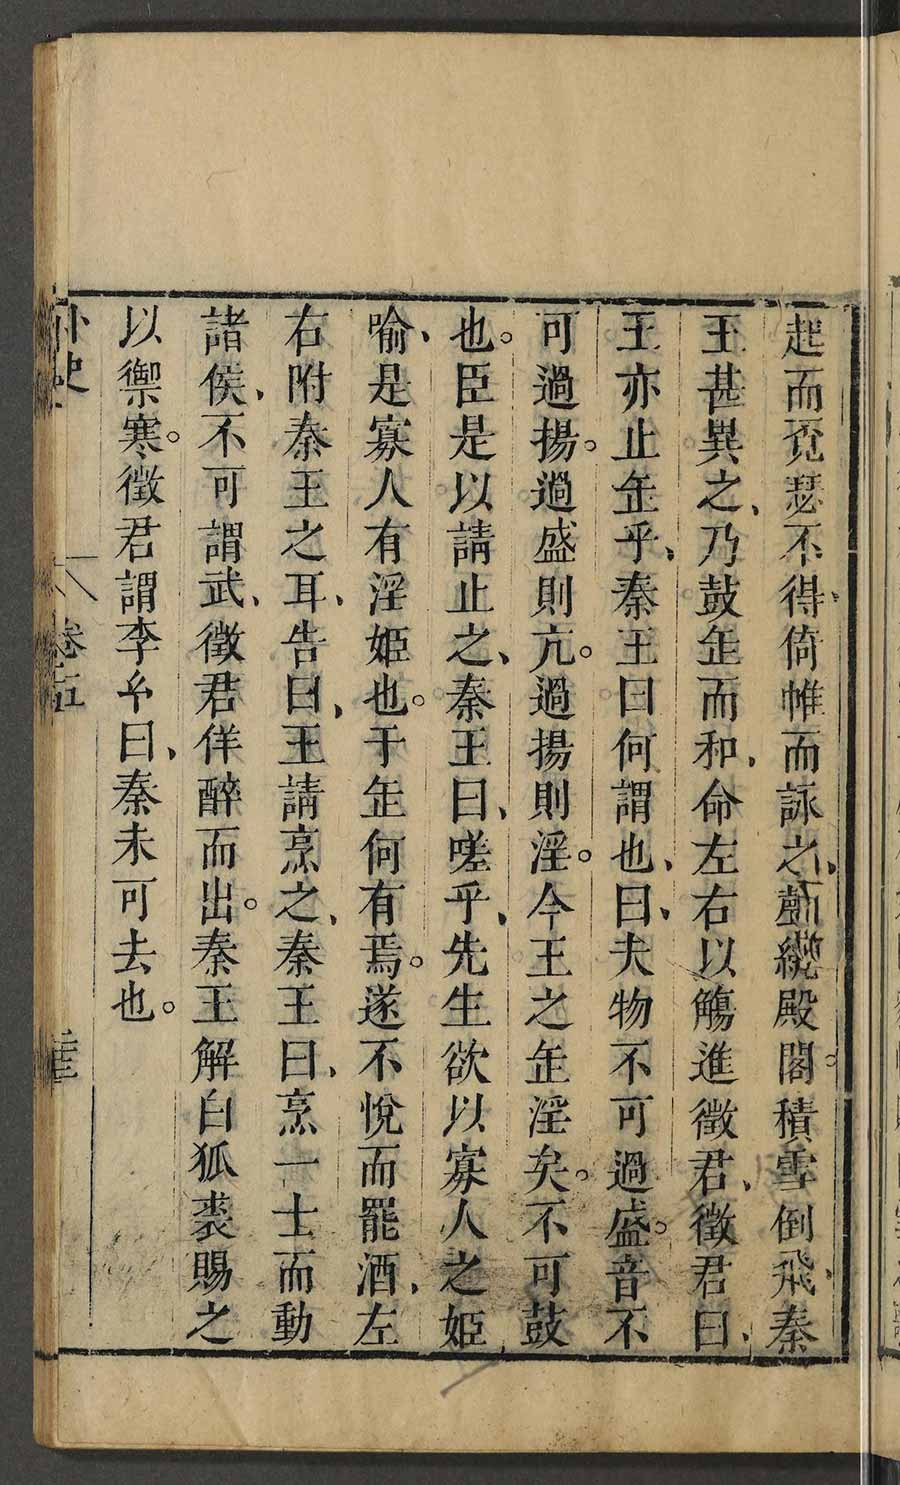 起而覓瑟不得倚帷而詠之韻繞殿閣積雪倒飛秦
王甚異之乃鼓缶而和命左右以觴進徵君徵君曰
王亦止缶乎秦王曰何謂也曰夫物不可過盛音不
可過揚過盛則亢過揚則淫今王之缶淫矣不可鼓
也臣是以請止之秦王曰嗟乎先生欲以寡人之姬
喻是寡人有淫姬也于缶何有焉遂不悅而罷酒左
右附秦王之耳告曰王請烹之秦王曰烹一士而動
諸侯不可謂武徵君佯醉而出秦王解白狐裘賜之
以禦寒徵君謂李兮曰秦未可去也
外史 卷五